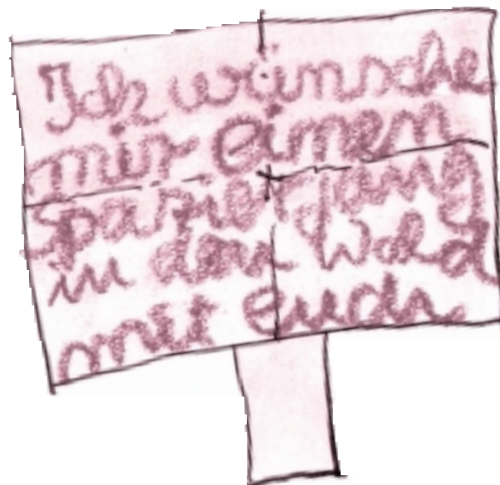 Ich wünsche
mir einen
spazier gang
in den Wald
mit euch